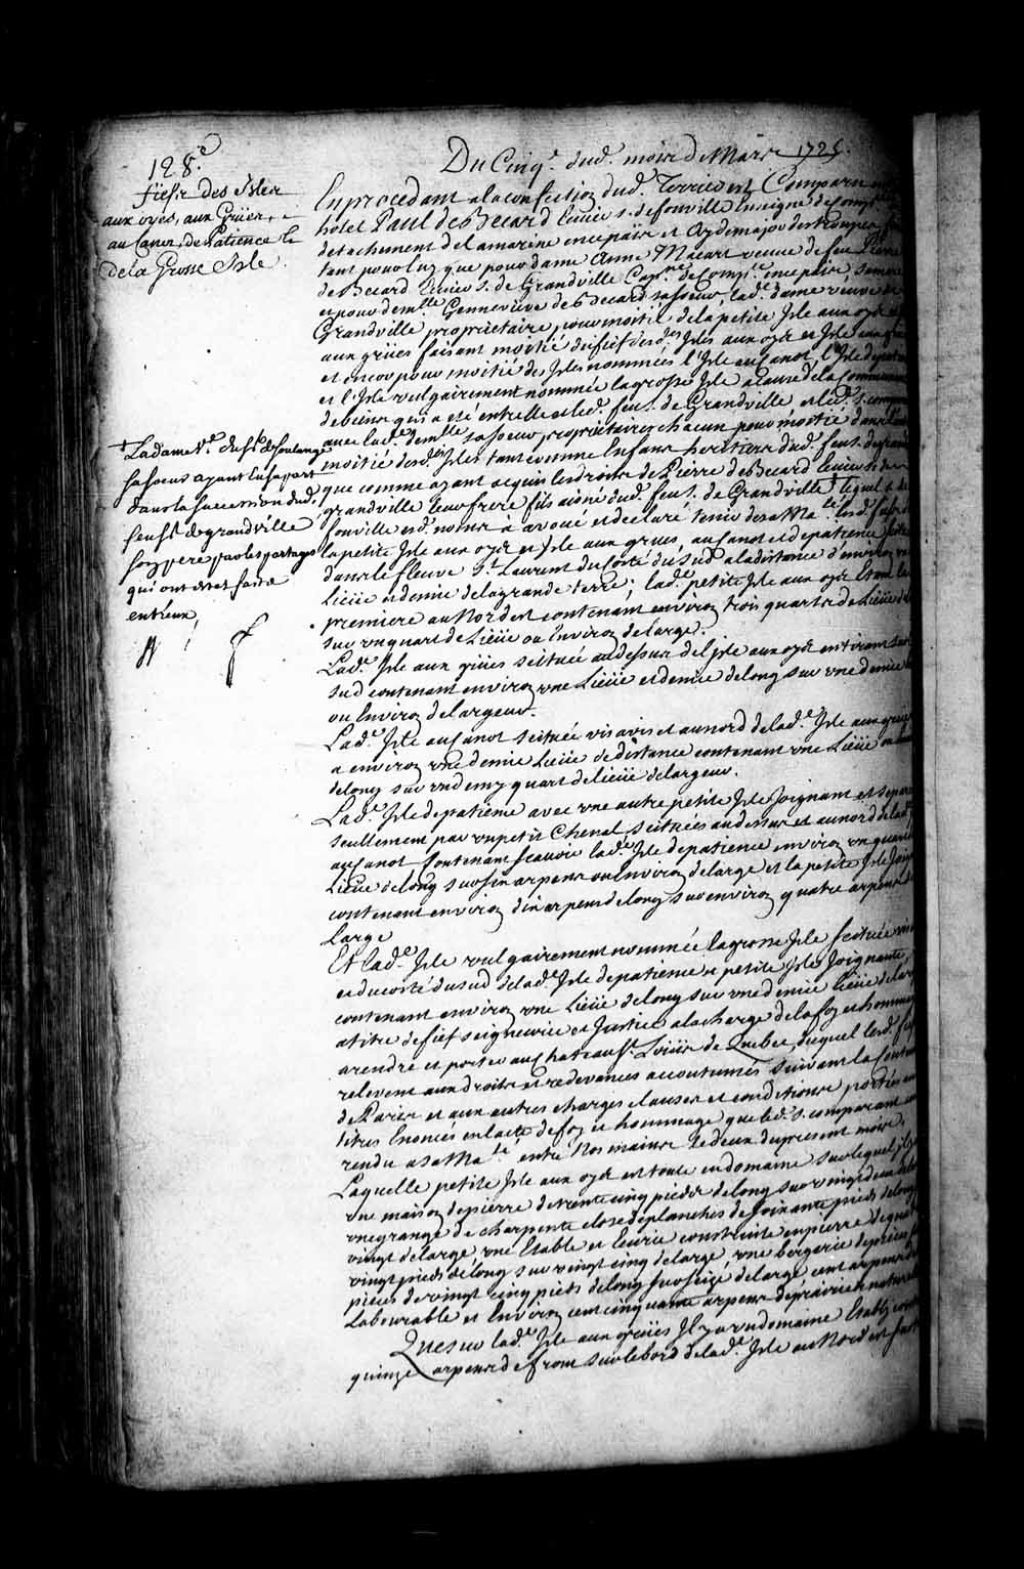 128.e
fief des Isles
aux oyes, aux Grües,
au Canot, de Patience &
de la Grosse Isle.
Du Cinq.e dud. mois de Mars 1725.
En procedant a la confection dud. Terrier est Comparu en
hotel Paul de Becard Ecuier s. de fonville Enseigne de Comp.ie
detachement de la marine en ce païs et Aydemajor des trouppes
tant pour luy que pour dame Anne Macart veuve de feu Pierre
de Becard Ecuier s. de Grandville Cap.ne de Comp.ie en ce païs, sa mere
et pour dem.lle Genneviève de Becard sa soeur, lad.e dame veuve de
Grandville proprietaire pour moitié de la petite Isle aux oyes &
aux grües faisant moitié du fief desd. Isles aux oyes et Isle aux grües
et encor pour moitié des Isles nommées l'Isle au Canot, l'Isle de patience
et l'Isle vulgairement nommée la grosse Isle a cause de la Communauté
de biens qui a eté entre elle et led. feu s. de Grandville et led. s. comparant
avec lad.e dem.lle sa soeur proprietaires chacun pour moitié dans l'autre
moitié desd. Isles tant comme Enfans heritiers dud. feu s. de grand
que comme ayant acquis les droits de Pierre de Becard Ecuier s. de
grandville leur frere fils aisné dud. feu s. de Grandville + lequel s. de
fonville esd. noms a avoué et declaré tenir de sa Ma.té lesd. Isles
la petite Isle aux oyes et Isle aux grües, au Canot et de patience scituées
dans le fleuve S.t Laurent du costé du Sud a la distance d'environ une
Lieüe et demie de la grande terre; lad.e petite Isle aux oyes Etant la
premiere au Nord est contenant environ trois quarts de Lieüe de
sur un quart de Lieüe ou Environ de large.
Lad.e Isle aux grües scituée au dessus de l'isle aux oyes en tirant
sud contenant environ une Lieüe et demie de long sur une demie
ou Environ de largeur.
Lad.e Isle au Canot scituée vis avis et au nord de lad.e Isle aux grües
a environ une demie Lieüe de distance contenant une Lieüe ou
de long sur un demy quart de lieüe de largeur.
Lad.e Isle de patience avec une autre petite Isle Joignant et separée
seullement par un petit Chenal scituées au dessus et au nord de lad.
au Canot Contenant scavoir lad.e Isle de patience environ un quart
Lieüe de long sur six arpens ou Environ de large et la petite Isle Joi
contenant environ dix arpens de long sur environ quatre arpens
Large
Et lad.e Isle vulgairement nommée la grosse Isle scituée
et du costé du sud de lad.e Isle de patience et petite Isle Joignante,
contenant environ une Lieüe de long sur une demie lieüe de large
a titre de fief seigneurie et Justice a la charge de la foy et hommage
a rendre et porter au Chateau S.t Loüis de Quebec, duquel lesd. fiefs
relevent aux droits et redevances accoutumés suivant la Coutume
de Paris et aux autres charges clauses et conditions portés
titres Enoncés en l'acte de foy et hommage que led. s. comparant
rendu a sa Ma.té entre Nos mains le deux du present mois,
Laquelle petite Isle aux oyes est toute en domaine sur lequel
une maison de pierre de trente cinq pieds de long sur vingt deux
une grange de charpente close de planches de soixante pieds de long
vingt de large, une Etable et Ecurie construite en pierre de quatre
vingt pieds de long sur vingt cinq de large, une bergerie de
pieux de vingt cinq pieds de long sur seize de large cent arpens
Labourable et Environ cent cinquante arpens de prairie naturelle
Que sur lad.e Isle aux grües Il y a un domaine Etably
quinze arpens de front sur le bord de lad.e Isle au Nord est
+ La dame V.e du s. de Soulange
sa soeur ayant Eu sa part
dans la succession dud.
feu s.r de grandville
son pere par les partages
qui ont eté faits
entreux,